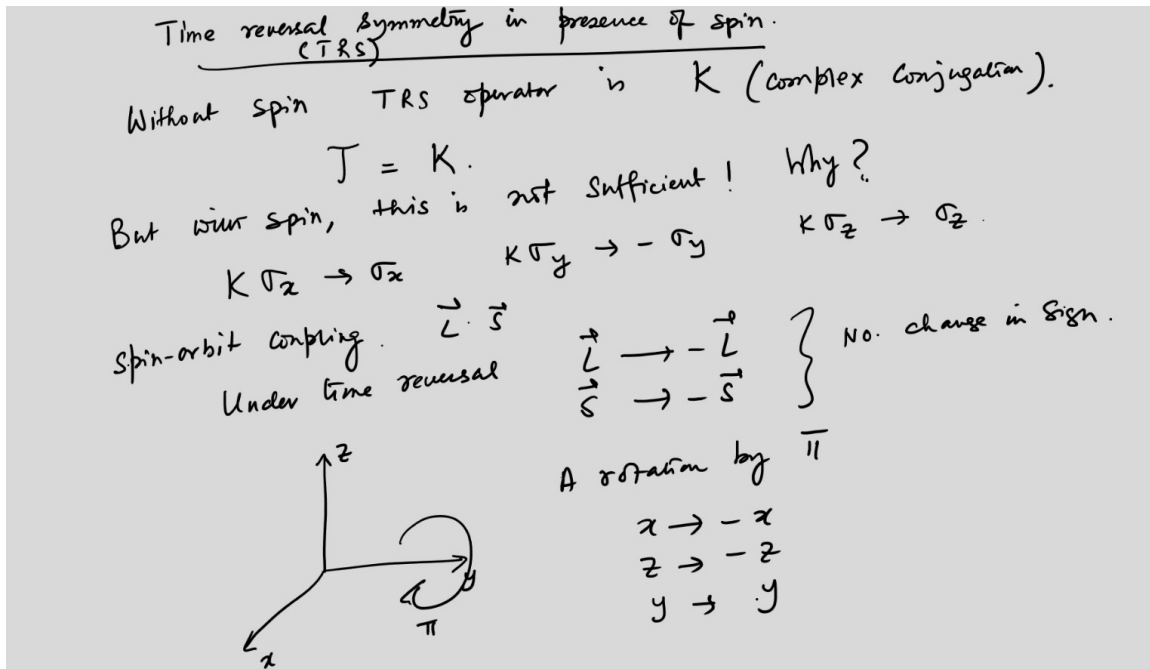 Time reversal symmetry in presence of spin.
(TRS)
Without spin TRS operator is K (complex conjugation).
T = K.
But with spin, this is not sufficient! Why?
Kσx → σx Kσy → - σy Kσz → σz.
Spin-orbit coupling. L⃗ · S⃗
Under time reversal L⃗ → - L⃗ } No. change in sign.
S⃗ → - S⃗
A rotation by π
x → - x
z → - z
y → y
z
y
π
x